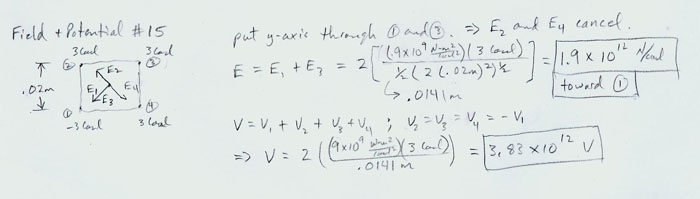 Field + Potential #15
3 Coul 3 Coul
② ③
E₂
.02m E₁ E₄
E₃
① ④
-3 Coul 3 Coul
put y-axis through ① and ③. ⇒ E₂ and E₄ cancel.
E = E₁ + E₃ = 2 [ (1.9×10⁹ N-m²/coul²)(3 coul) / ½(2(.02m)²)^½ ] = 1.9 × 10¹² N/coul
↳ .0141m toward ①
V = V₁ + V₂ + V₃ + V₄ ; V₂ = V₃ = V₄ = - V₁
⇒ V = 2 ( (9×10⁹ N-m²/coul²)(3 coul) / .0141 m ) = 3.83 ×10¹² V